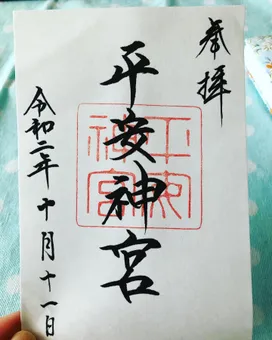 奉拝
平安神宮
令和二年十月十一日
平安神宮